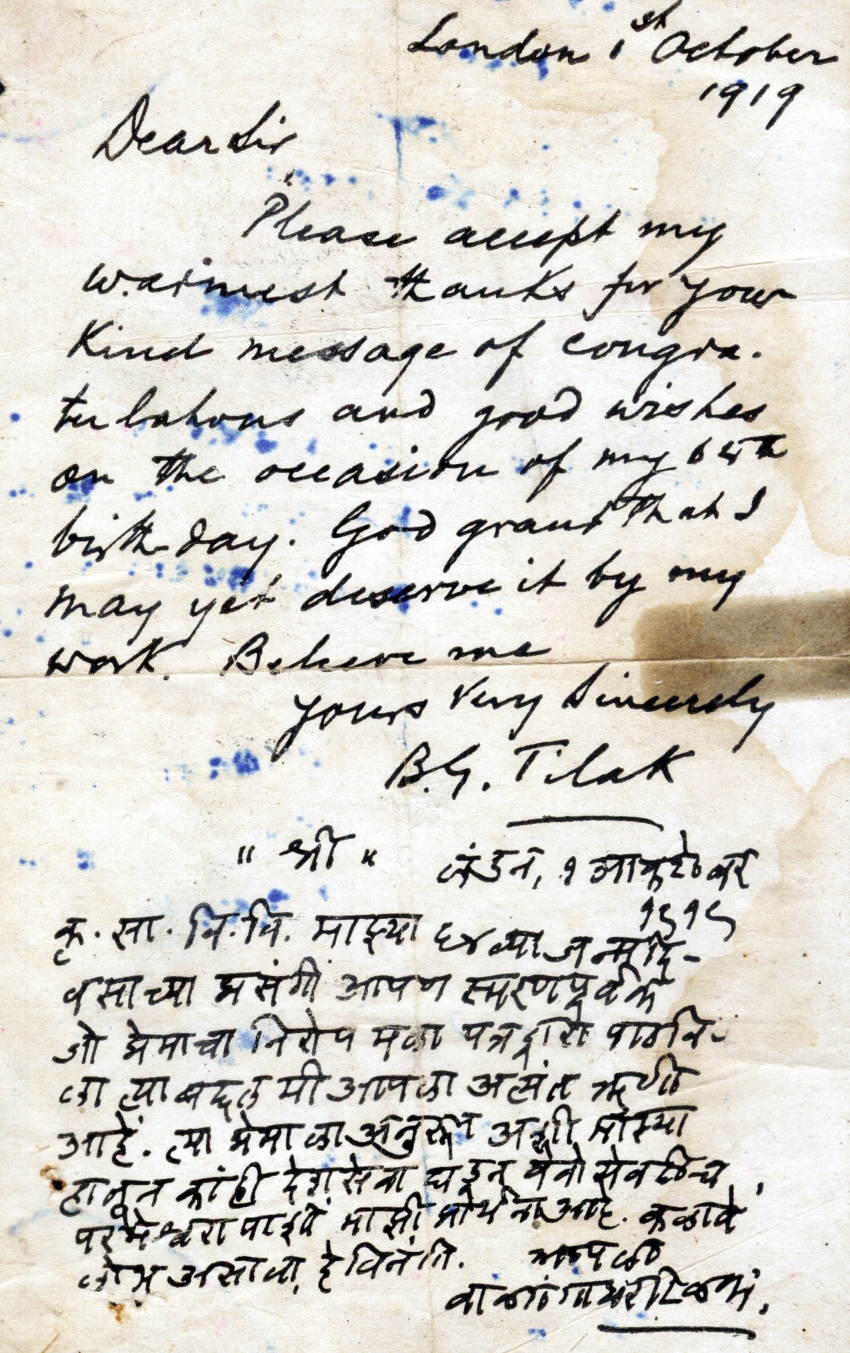 London 1st October
1919
Dear Sir
Please accept my
warmest thanks for your
kind message of congra-
tulations and good wishes
on the occasion of my 64th
birth-day. God grant that I
may yet deserve it by my
work. Believe me
yours very sincerely
B.G. Tilak
" श्री "
लंडन, १ आक्टोबर
१९१९
कृ. सा. न. वि. वि. माझ्या ६४ व्या जन्मदि-
वसाच्या प्रसंगी आपण स्मरणपूर्वक
जो प्रेमाचा निरोप मला पत्रद्वारा पाठवि-
ला त्याबद्दल मी आपला अत्यंत ऋणी
आहे. त्या प्रेमाला अनुरूप अशी माझ्या
हातून कांही देशसेवा घडून येवो
परमेश्वरापाशी माझी प्रार्थना आहे. कळावे
लोभ असावा, हे विनंति. आपला
बाळ गंगाधर टिळक.